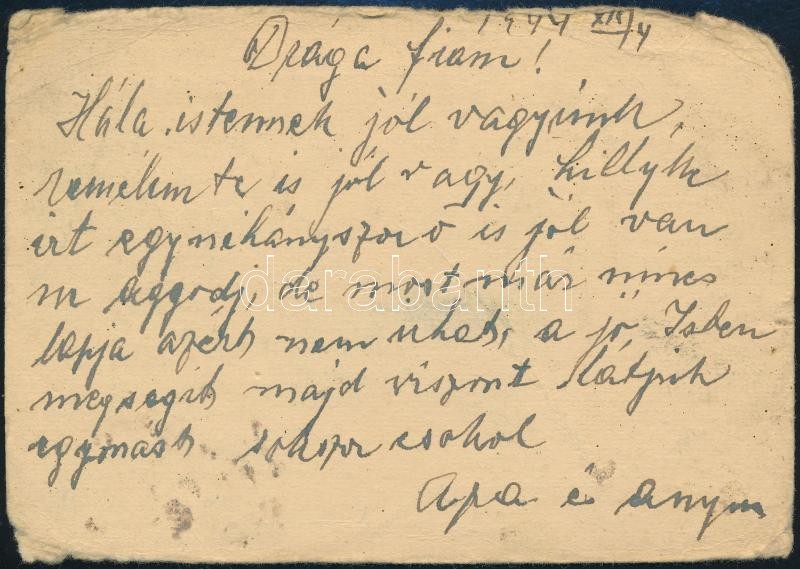 1944 XII/4
Drága fiam!
Hála istennek jól vagyunk,
remélem te is jól vagy,
irt egynehányszor ő is jól van
ne aggodj, de most már nincs
lapja azért nem irhat, a jó Isten
megsegit majd viszont látjuk
egymást sokszor csokol
Apa é anyu
darabanth